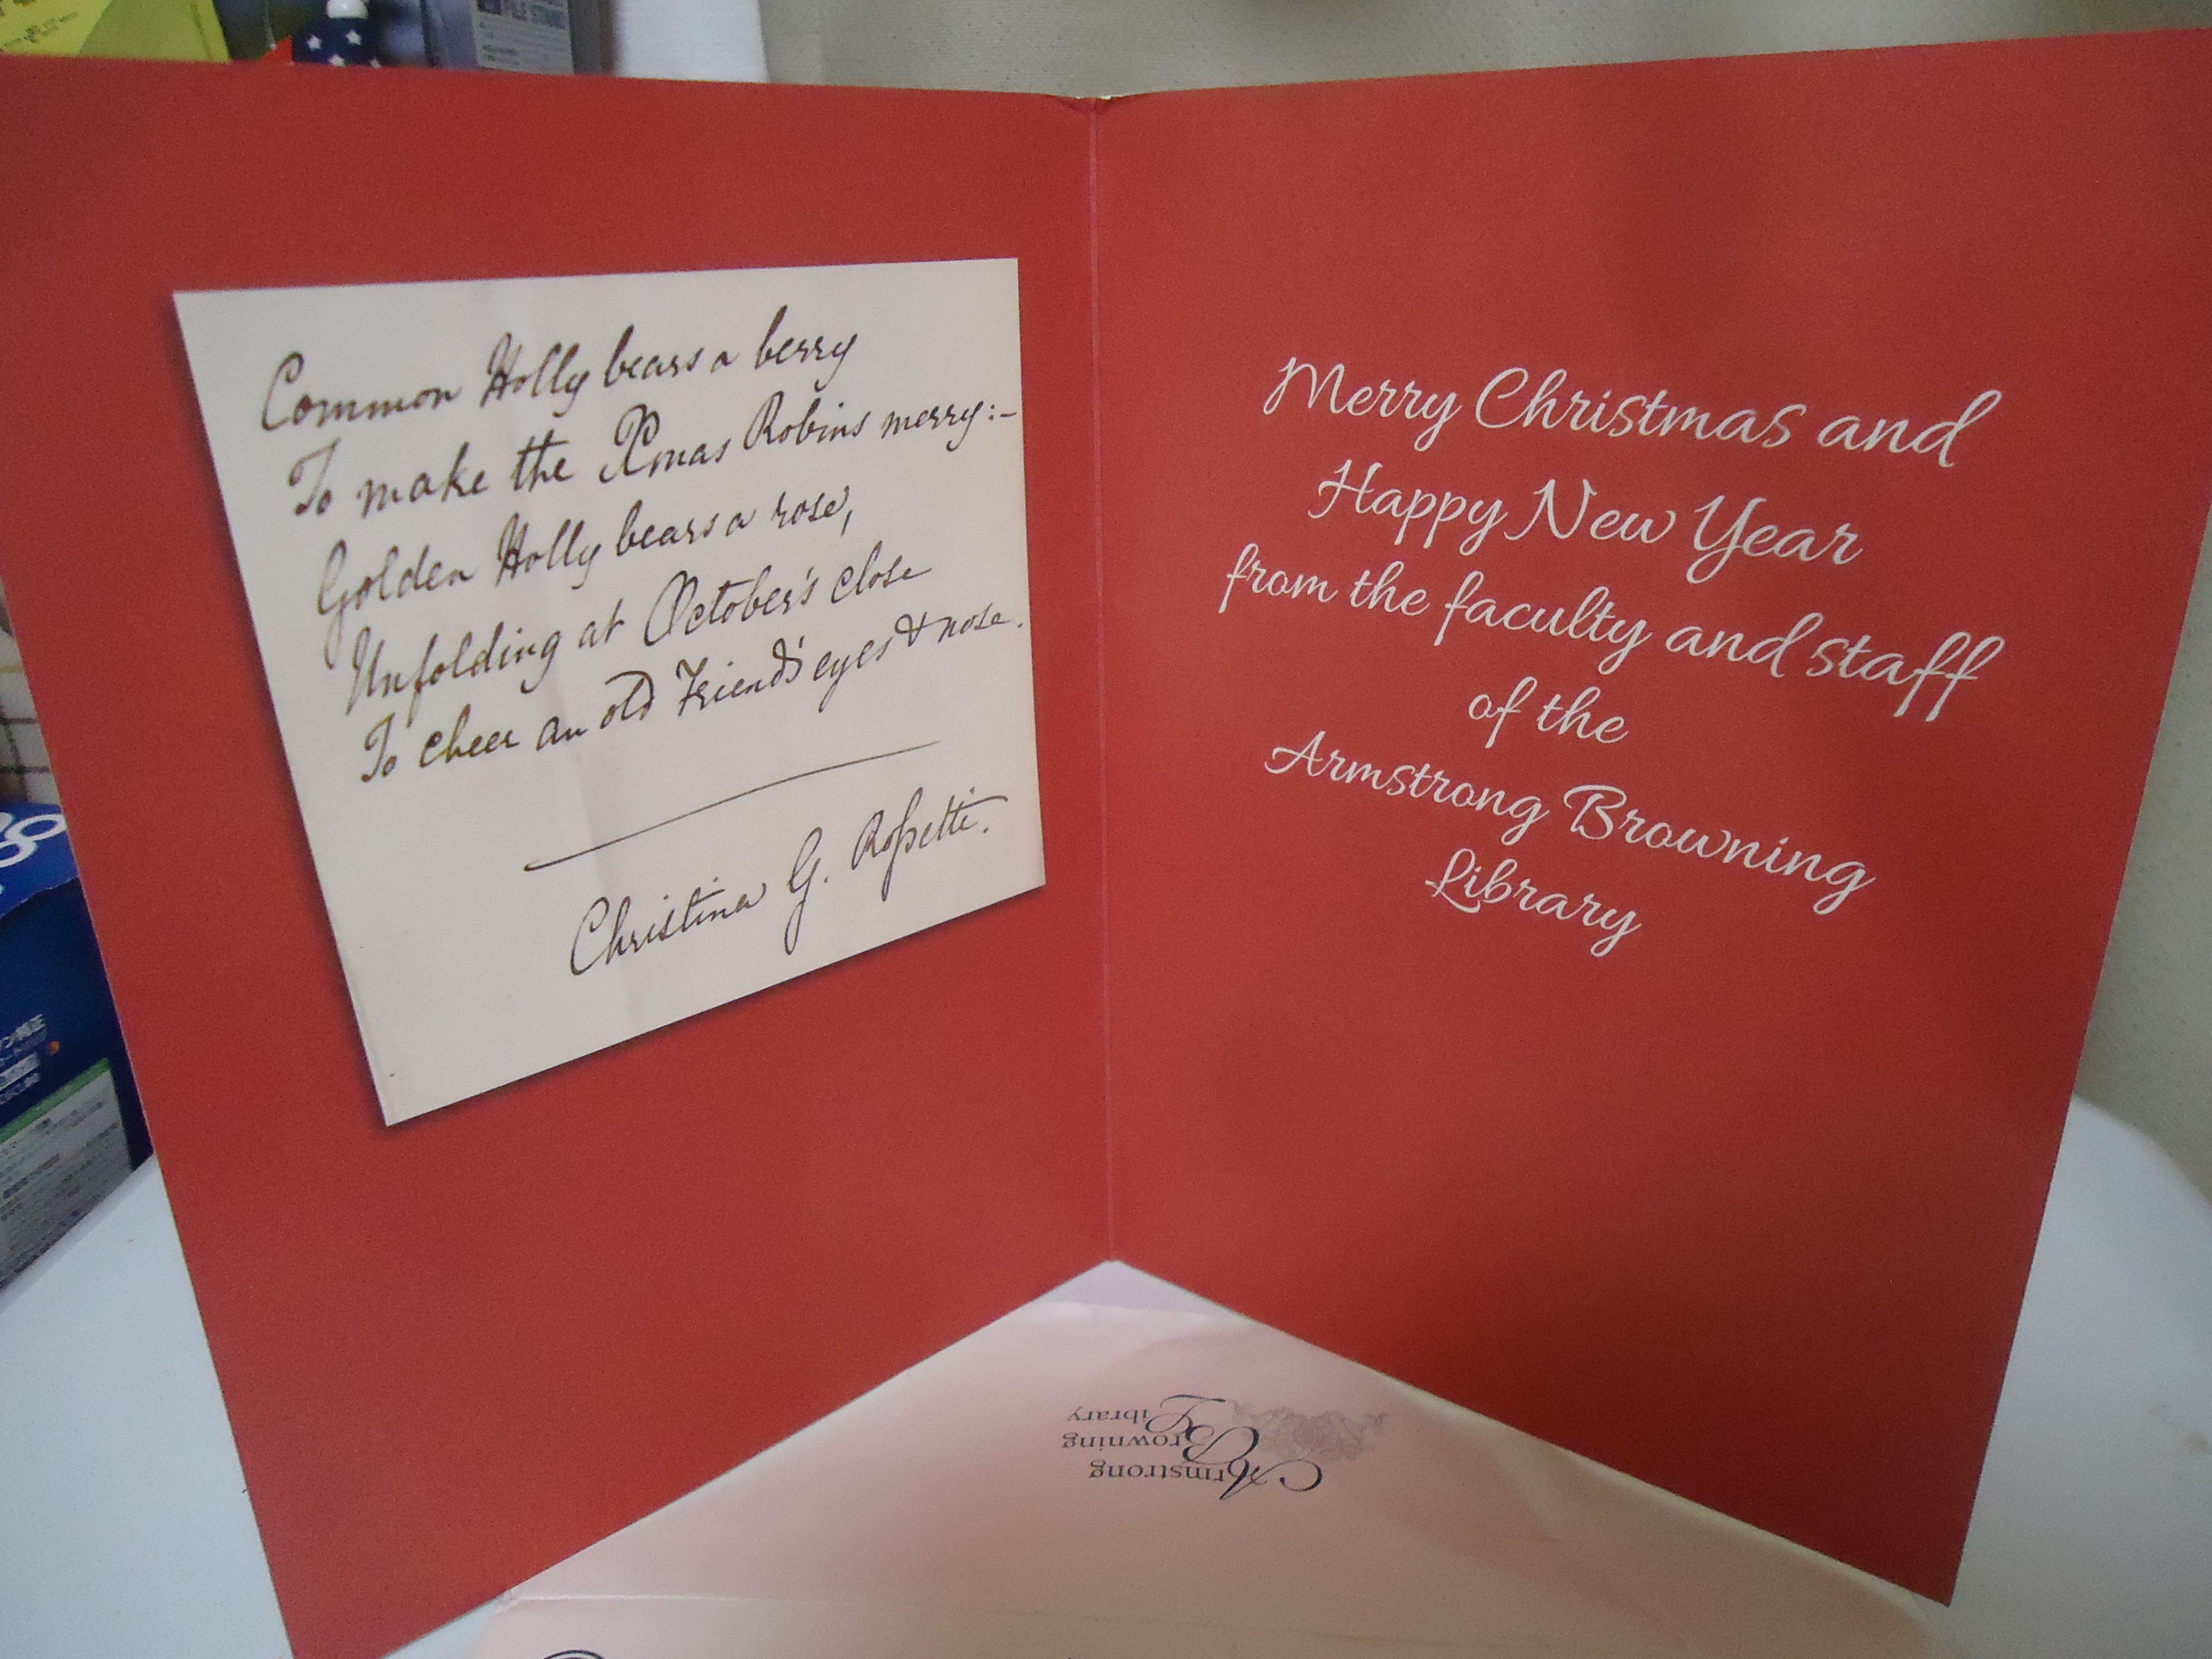 Common Holly bears a berry
To make the Xmas Robins merry:–
Golden Holly bears a rose,
Unfolding at October's close
To cheer an old Friend's eyes & nose.
Christina G. Rossetti.
Merry Christmas and
Happy New Year
from the faculty and staff
of the
Armstrong Browning
Library
Armstrong
Browning
Library